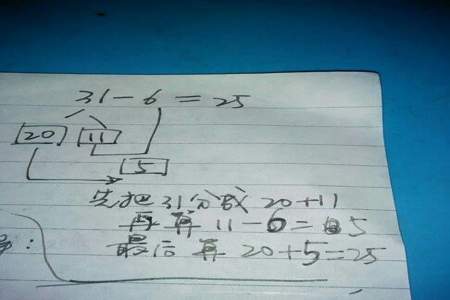 31-6=25
20 11
5
先把31分成 20+11
再算 11-6=5
最后再 20+5=25